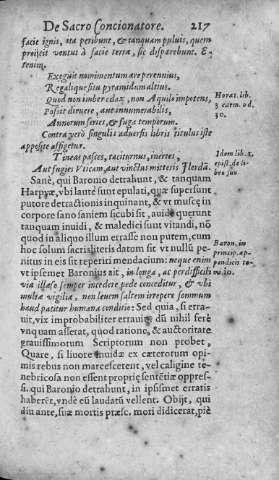 De Sacro Concionatore. 217
facie ignis, ita peribunt, & tanquam puluis, quem
proijcit ventus à facie terræ, sic disparebunt. E-
tenim,
Exegit monimentum ære perennius,
Regaliq; situ pyramidum altius.
Quod non imber edax, non Aquilo impotens,
Possit diruere, aut innumerabilis,
Annorum series, & fuga temporum.
Horat. lib.
3 carm. od.
30.
Contra verò singulis aduersis libris titulus iste
appositè affigetur.
Tineas pasces, taciturnus, inertes,
Aut fugies Vticam, aut vinctus mitteris Ilerdã.
Idem lib. 1.
epist. de li-
bro suo
Sanè, qui Baronio detrahunt, & tanquam
Harpyæ, vbi lautè sunt epulati, quæ supersunt
putore detractionis inquinant, & vt muscæ in
corpore sano saniem sicubi sit, auidè querunt
tanquam inuidi, & maledici sunt vitandi, nõ
quod in aliquo illum errasse non putem, cum
hoc solum sacris literis datum sit vt nullũ pe-
nitus in eis sit reperiri mendacium: neque enim
vt ipsemet Baronius ait, in longa, ac perdifficili
via illæso semper incedere pede conceditur, & vbi
multa vigilia, non leuem saltem irrepere somnum
haud patitur humana conditio: Sed quia, si erra-
uit, vix improbabiliter errauit, dũ nihil ferè
vnquam asserat, quod ratione, & auctoritate
grauissimorum Scriptorum non probet,
Baron. in
princip. ap-
pendicis to-
Quare, si liuore inuidæ ex cæterorum opi-
mis rebus non marcescerent, vel caligine te-
nebricosa non essent propriæ sententiæ oppres-
si. qui Baronio detrahunt, in ipsismet erratis
haberẽt, vndè eũ laudatũ vellent. Obijt, qui
diu ante, suæ mortis præsc. mori didicerat, piè